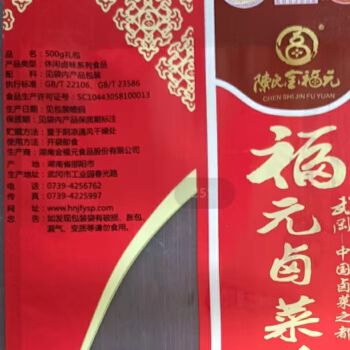 品    名：500g礼包
产品类型：休闲卤味系列食品
配    料：见袋内产品包装
执行标准：GB/T 22106、GB/T 23586
食品生产许可证号：SC10443058100013
生产日期：见包装喷码
保质期：见袋内产品保质期标注
贮藏方法：置于阴凉通风干燥处
使用方法：开袋即食
生产商：湖南金福元食品股份有限公司
产    地：湖南省邵阳市
生产地址：武冈市工业园春光路
电    话：0739-4256762
传    真：0739-4225997
网    址：www.hnjfysp.com
告    示：如发现包装袋有破损、胀包、
漏气、变质等请勿食用。
陈氏金福元
CHEN SHI JIN FU YUAN
福元卤菜
武冈·中国卤菜之都